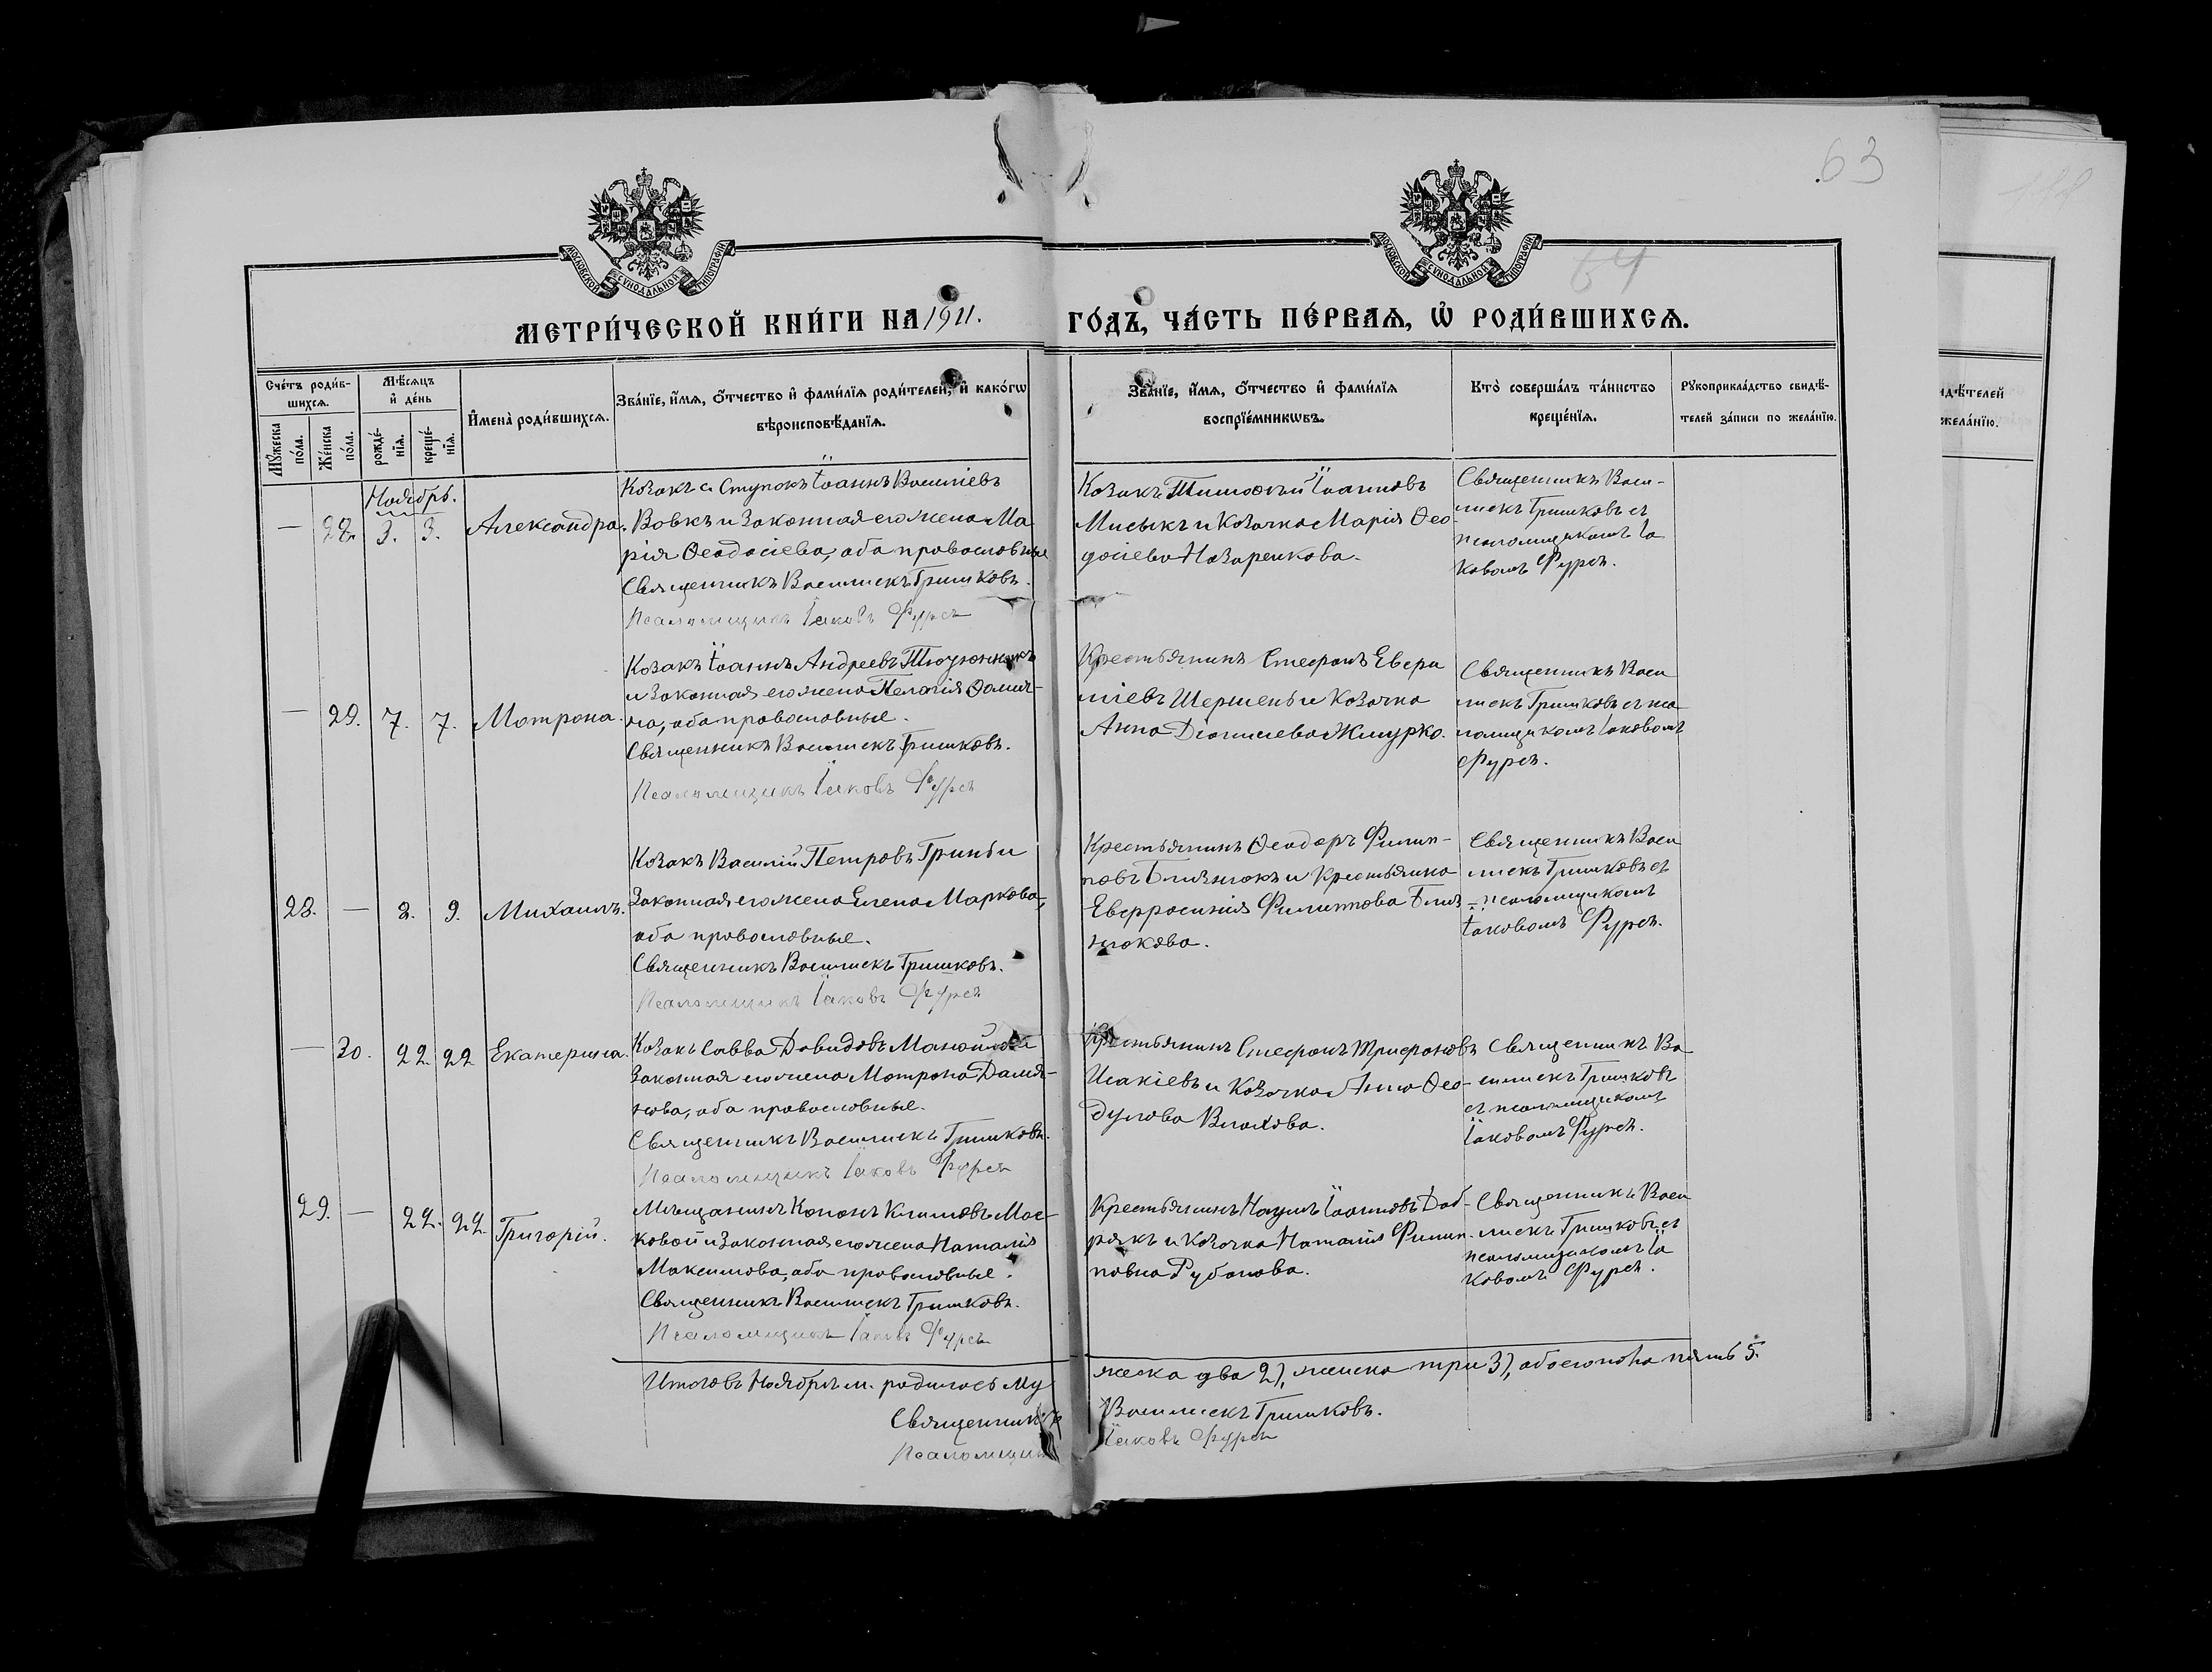 63
64
МОСКОВСКОЙ СУНОДАЛЬНОЙ ТИПОГРАФІИ
МОСКОВСКОЙ СУНОДАЛЬНОЙ ТИПОГРАФІИ
МЕТРИ́ЧЕСКОЙ КНИ́ГИ НА 1911.
ГО́ДЪ, ЧА́СТЬ ПЕ́РВАѦ, Ѡ҆ РОДИ́ВШИХСѦ.
Сче́тъ роди́в-
шихсѧ.
Мꙋ́жеска по́ла.
Же́нска по́ла.
Мѣ́сѧцъ
и҆ де́нь
рожде́-нїѧ.
креще́-нїѧ.
И҆мена̀ роди́вшихсѧ.
Зва́нїе, и҆́мѧ, ѻ҆́тчество и҆ фамилїѧ роди́телей, и҆ како́гѡ
вѣроисповѣ́данїѧ.
Зва́нїе, и҆́мѧ, ѻ҆́тчество и҆ фами́лїѧ
воспрїе́мникѡвъ.
Кто̀ соверша́лъ та́инство
креще́нїѧ.
Рꙋкоприкла́дство свидѣ́-
телей за́писи по жела́нїю.
идѣ́телей
жела́нїю.
Ноябрь.
— 28. 3. 3. Александра.
Козакъ с. Ступокъ Іоаннъ Василіевъ
Вовкъ и законная его жена Ма
рія Ѳеодосіева, оба православные
Священникъ Василискъ Гришковъ.
Псаломщикъ Іаковъ Фурса
Козакъ Тимоѳей Іоанновъ
Мисыкъ и Козачка Марія Ѳео
досіева Назаренкова.
Священникъ Васи-
лискъ Гришковъ съ
псаломщикомъ Іа
ковомъ Фурса.
— 29. 7. 7. Матрона.
Козакъ Іоаннъ Андреевъ Тютюнникъ
и законная его жена Пелагія Ѳоми-
на, оба православные.
Священникъ Василискъ Гришковъ.
Псаломщикъ Іаковъ Фурса
Крестьянинъ Стефанъ Евста
Шершень и Козачка
Анна Діонисіева Жмурко.
Священникъ Васи
лискъ Гришковъ съ пса
ломщикомъ Іаковомъ
Фурса.
28. — 8. 9. Михаилъ.
Козакъ Василій Петровъ Гринь и
Законная его жена Елена Маркова,
оба православные.
Священникъ Василискъ Гришковъ.
Псаломщикъ Іаковъ Фурса
Крестьянинъ Ѳеодоръ Филип-
повъ Близнюкъ и Крестьянка
Евфросинія Филиппова Близ
нюкова.
Священникъ Васи
лискъ Гришковъ съ
псаломщикомъ
Іаковомъ Фурса.
— 30. 22. 22 Екатерина.
Козакъ Савва Давидовъ
Законная его жена Матрона Даміа-
нова, оба православные.
Священникъ Василискъ Гришковъ.
Псаломщикъ Іаковъ Фурса
Крестьянинъ Стефанъ Трифоновъ
Исакіевъ и Козачка Анна Ѳео-
дулова Влахова.
Священникъ Ва
силискъ Гришковъ
съ псаломщикомъ
Іаковомъ Фурса.
29. — 22. 22. Григорій.
Мѣщанинъ Кононъ Климовъ Мос-
ковой и Законная его жена Наталія
Максимова, оба православные.
Священникъ Василискъ Гришковъ.
Псаломщикъ Іаковъ Фурса
Крестьянинъ Наумъ Іоанновъ Доб-
рякъ и Козачка Наталія Филип-
повна Рубанова.
Священникъ Васи
лискъ Гришковъ съ
псаломщикомъ Іа
ковомъ Фурса.
Итого въ Ноябрѣ м. родилось му
жеска два 2), женска три 3), обоего пола пять 5.
Священникъ Василискъ Гришковъ.
Псаломщикъ Іаковъ Фурса